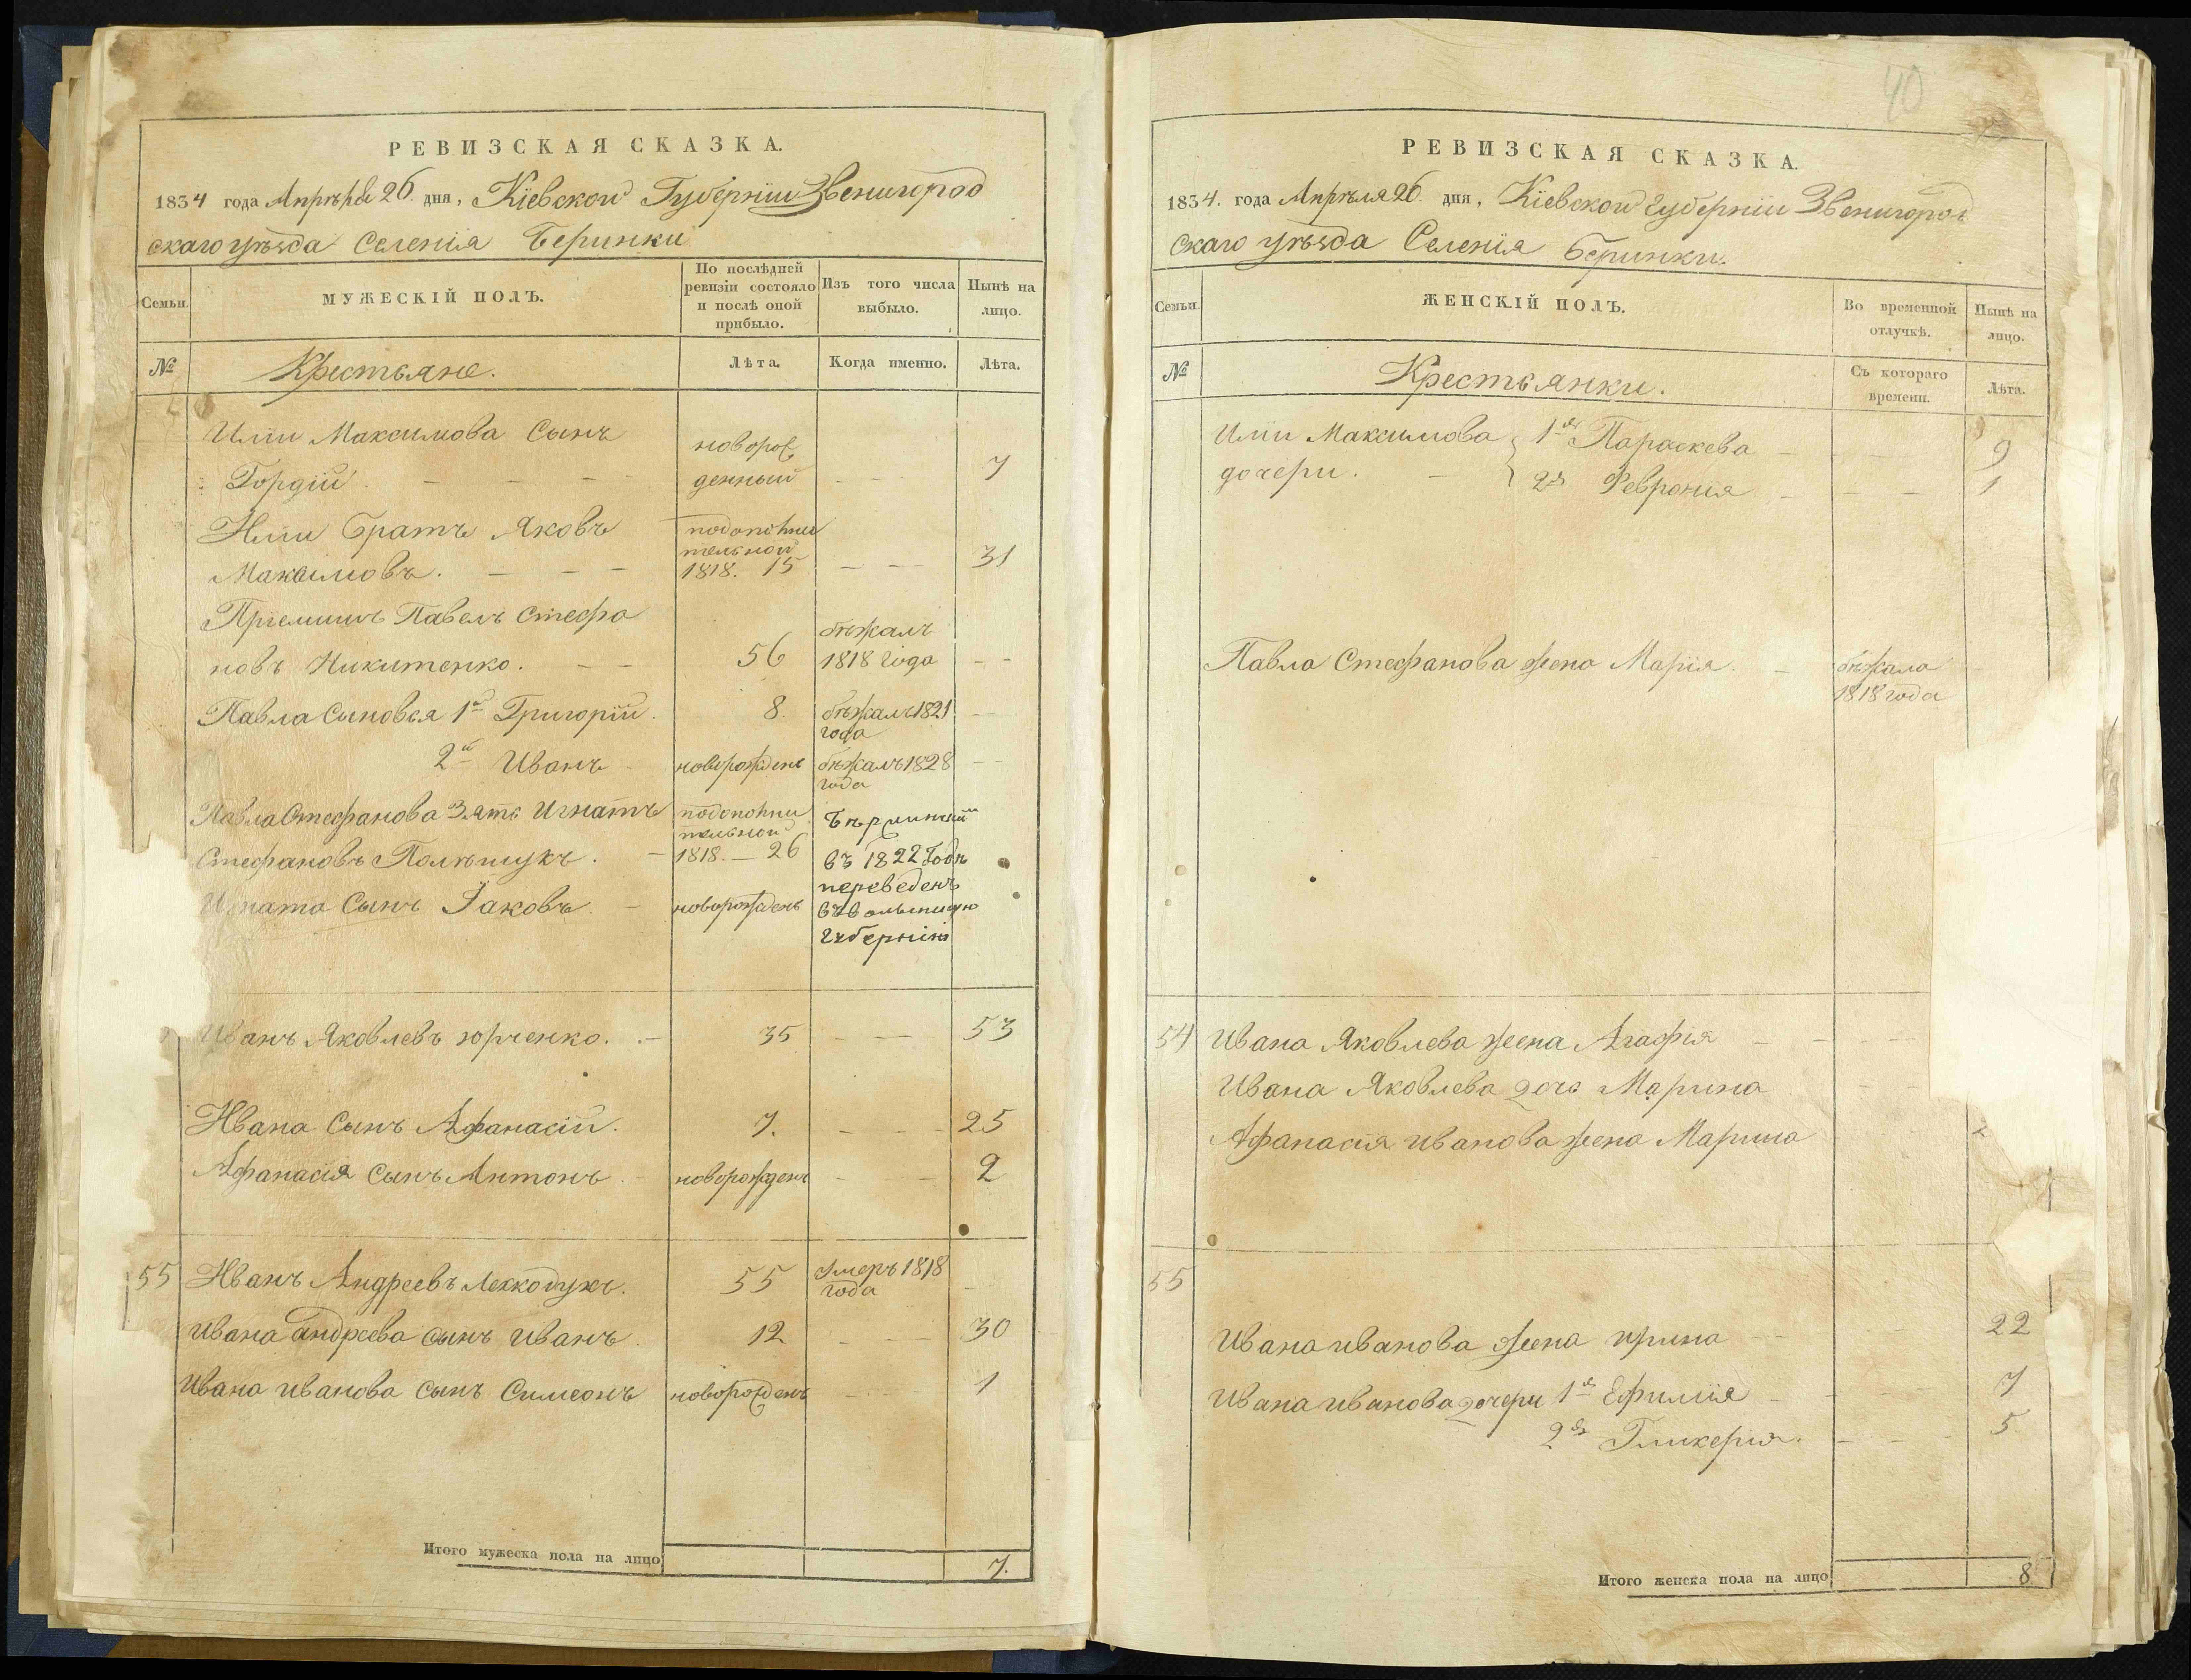 РЕВИЗСКАЯ СКАЗКА.
1834 года Апрѣля 26 дня, Кіевской Губерніи Звенигород
скаго уѣзда Селенія Беринки
Семьи.
МУЖЕСКІЙ ПОЛЪ.
По послѣдней ревизіи состояло и послѣ оной прибыло.
Изъ того числа выбыло.
Нынѣ на лицо.
№
Крестьяне.
Лѣта.
Когда именно.
Лѣта.
Иліи Максимова Сынъ
Гордій новорож
денный 7
Иліи Братъ Яковъ
Максимовъ. 1818. 15 31
Пріемышъ Павелъ Стефа
новъ Никитенко. 56 бѣжалъ 1818 года
Павла Сыновья 1й Григорій. 8. бѣжалъ 1821 года
2й Иванъ новорожденъ бѣжалъ 1828 года
Павла Стефанова Зять Игнатъ
Стефановъ Полѣщукъ. 1818. 26 въ 1822 годѣ
переведенъ
Игната Сынъ Іаковъ новорожденъ
Губернію
Иванъ Яковлевъ Юрченко. 35 53
Ивана Сынъ Афанасій. 7. 25
Афанасія Сынъ Антонъ новорожденъ 2
55 Иванъ Андреевъ 55 Умеръ 1818 года
Ивана Андреева сынъ Иванъ 12 30
Ивана Иванова сынъ Симеонъ новорожденъ 1
Итого мужеска пола на лицо 7.
40
РЕВИЗСКАЯ СКАЗКА.
1834. года Апрѣля 26. дня, Кіевской Губерніи Звенигород
скаго уѣзда Селенія Беринки.
Семьи.
ЖЕНСКІЙ ПОЛЪ.
Во временной отлучкѣ.
Нынѣ на лицо.
№
Крестьянки.
Съ котораго времени.
Лѣта.
Иліи Максимова 1я Параскева 9
дочери. 2я Феврония 1
Павла Стефанова жена Марія бѣжала
1818 года
54 Ивана Яковлева жена Агафія
Ивана Яковлева дочь Марина
Афанасія Иванова жена Марина
55
Ивана Иванова жена Ирина 22
Ивана Иванова дочери 1я Ефимія 7
2я Гликерия. 5
Итого женска пола на лицо 8